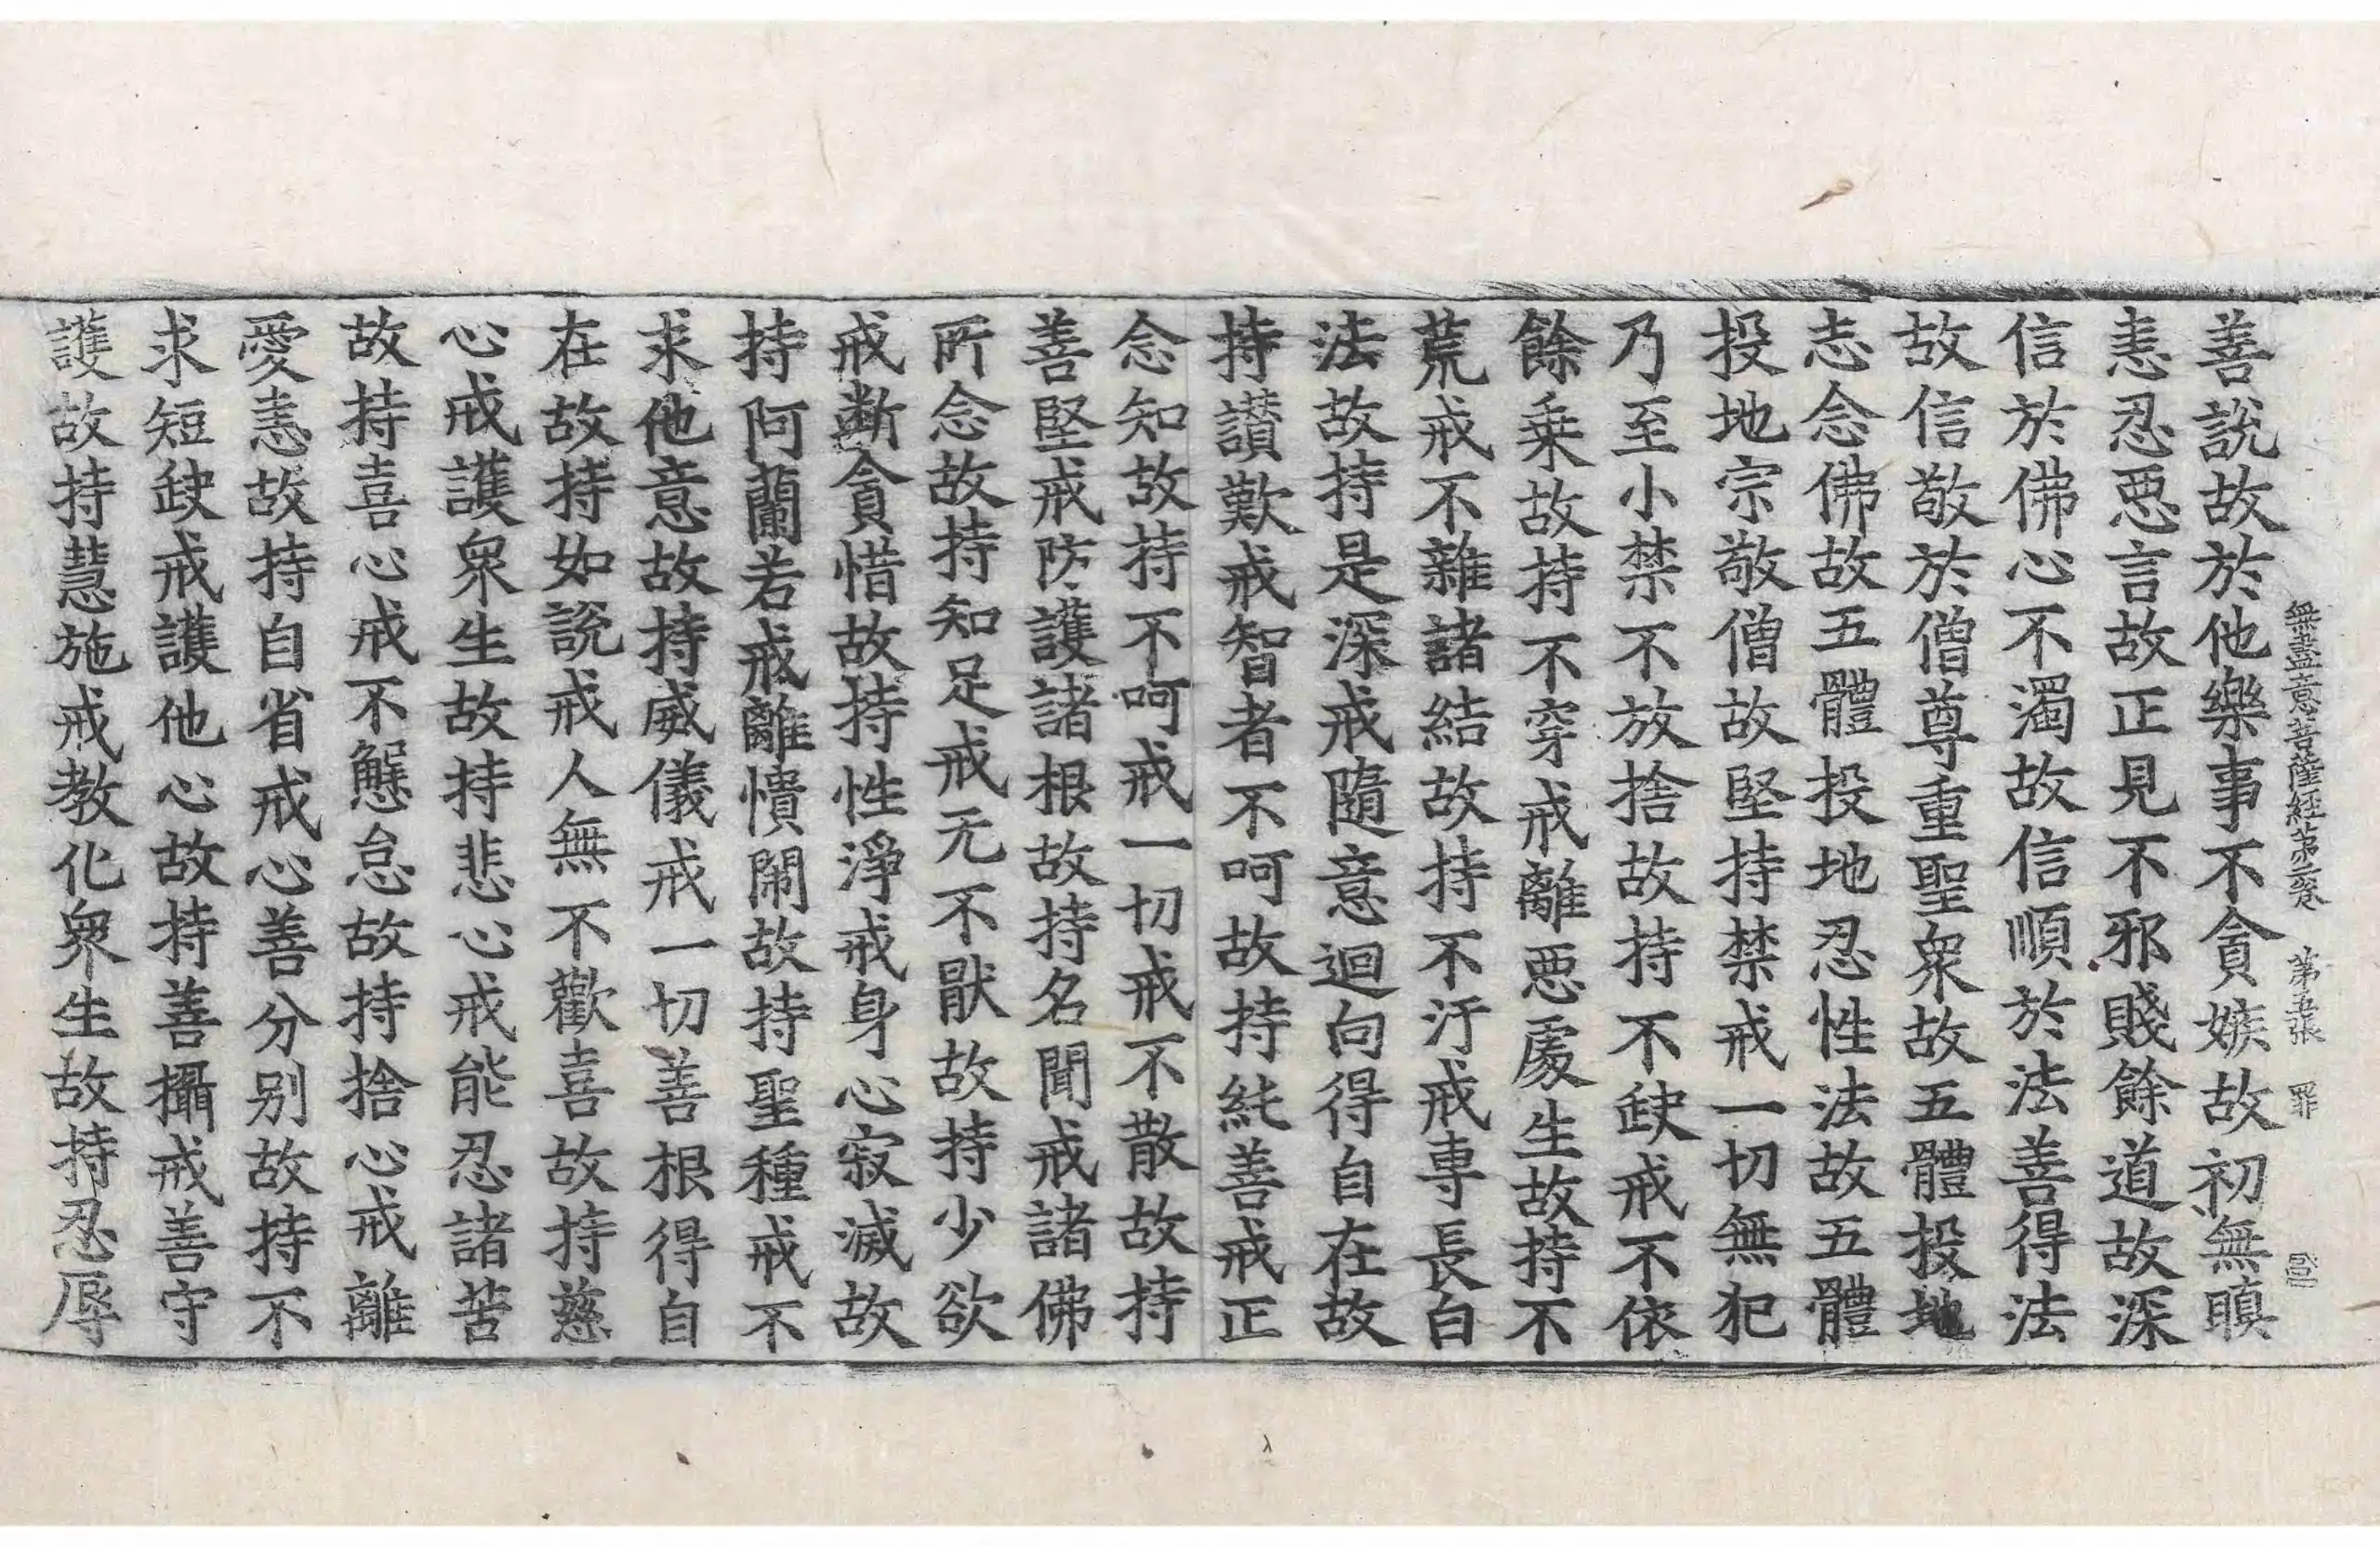 無盡意菩薩經第二卷 第五張 罪
善說故於他樂事不貪嫉故初無瞋
恚忍惡言故正見不邪賤餘道故深
信於佛心不濁故信順於法善得法
故信敬於僧尊重聖衆故五體投地
志念佛故五體投地忍性法故五體
投地宗敬僧故堅持禁戒一切無犯
乃至小禁不放捨故持不𡙇戒不依
餘乗故持不穿戒離惡處生故持不
荒戒不雜諸結故持不汙戒專長白
法故持是深戒隨意迴向得自在故
持讃歎戒智者不呵故持純善戒正
念知故持不呵戒一切戒不散故持
善堅戒防護諸根故持名聞戒諸佛
所念故持知足戒无不猒故持少欲
戒斷貪惜故持性淨戒身心寂滅故
持阿蘭若戒離憒閙故持聖種戒不
求他意故持威儀戒一切善根得自
在故持如說戒人無不歡喜故持慈
心戒護衆生故持悲心戒能忍諸苦
故持喜心戒不懈怠故持捨心戒離
愛恚故持自省戒心善分別故持不
求短𡙇戒護他心故持善攝戒善守
護故持慧施戒教化衆生故持忍辱